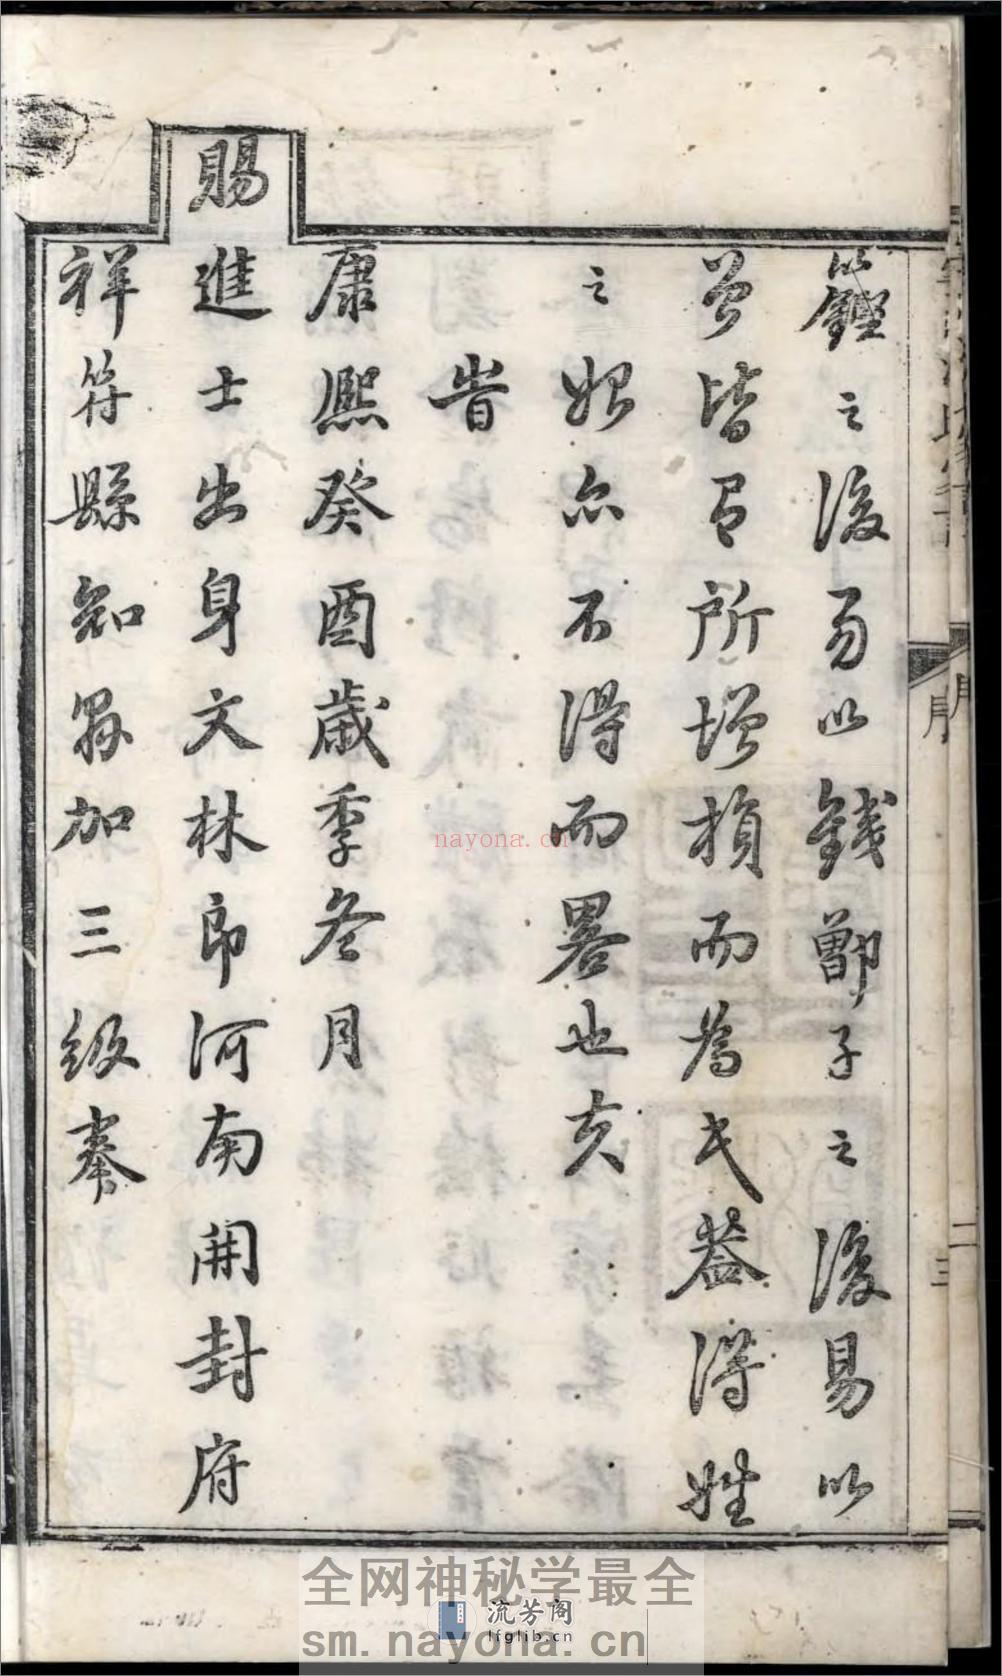 籛鏗之後易以錢鄫子之後易以
曾皆有所增損而為氏蓋得姓
之始亦不得而畧也夫
旹
康熙癸酉歲季冬月
賜進士出身文林郎河南開封府
祥符縣知縣加三級奉
序
二
三
nayona.cn
全网神秘学最全
流芳阁
lfglib.cn
sm.nayona.cn